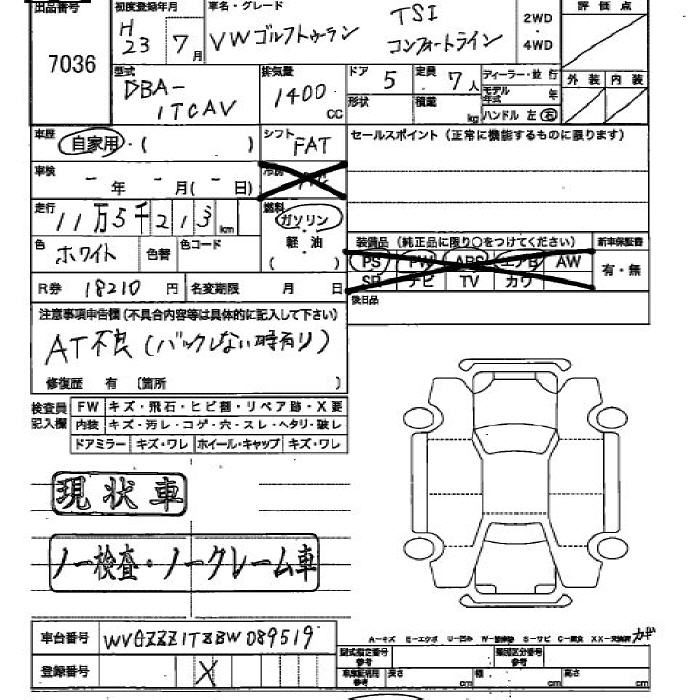 出品番号
7036
初度登録年月
H23年 7月
車名・グレード
VW ゴルフトゥーラン TSI コンフォートライン
2WD
・
4WD
評価点
外装 内装
型式
DBA-1TCAV
排気量
1400 CC
ドア 5
定員 7人
形状
積蔵 kg
ディーラー・並行
モデル年式 年
ハンドル 左 右
車歴
自家用・( )
シフト
FAT
冷房
セールスポイント(正常に機能するものに限ります)
車検
- 年 - 月(- 日)
走行
11万5千213 km
燃料
ガソリン・軽油
( )
色
ホワイト
色替
色コード
装備品(純正品に限り○をつけてください)
PS PW ABS エアB AW
SR ナビ TV カワ
新車保証書
有・無
R券 18210円
名変期限 月 日
後日品
注意事項申告欄(不具合内容等は具体的に記入して下さい)
AT不良(バックしない時有り)
修復歴 有 〔箇所 〕
検査員記入欄
FW キズ・飛石・ヒビ割・リペア跡・X要
内装 キズ・汚レ・コゲ・穴・スレ・ヘタリ・破レ
ドアミラー キズ・ワレ ホイール・キャップ キズ・ワレ
現状車
ノー検査・ノークレーム車
車台番号 WVGZZZ1TZBW089519
登録番号 X
A-キズ E-エクボ U-凹み S-サビ
型式指定番号 参考
類別区分番号 参考
長さ cm 幅 cm 高さ cm